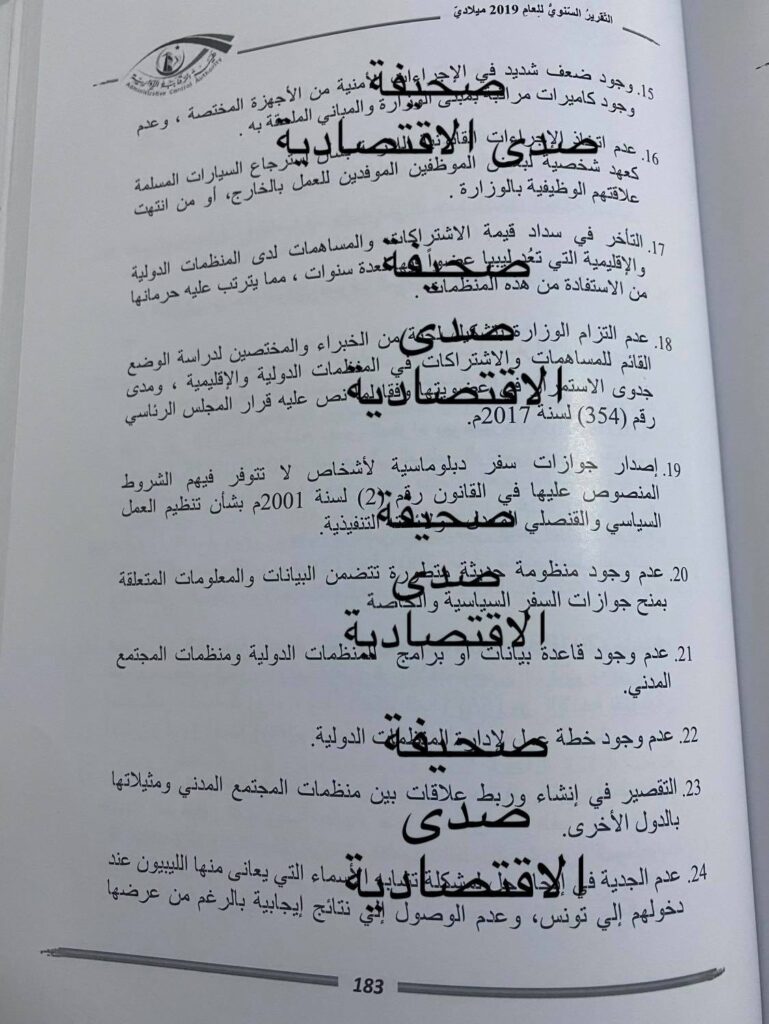 التقرير السنوي للعام 2019 ميلادي
هيئة الرقابة الإدارية
Administrative Control Authority
15. وجود ضعف شديد في الإجراءات الأمنية من الأجهزة المختصة ، وعدم
وجود كاميرات مراقبة بمبنى الوزارة والمباني الملحقة به .
16. عدم اتخاذ الإجراءات استرجاع السيارات المسلمة
كعهد شخصية لبعض الموظفين الموفدين للعمل بالخارج، أو من انتهت
علاقتهم الوظيفية بالوزارة .
17. التأخر في سداد قيمة الاشتراكات والمساهمات لدى المنظمات الدولية
والإقليمية التي تعُد ليبيا عضواً لعدة سنوات ، مما يترتب عليه حرمانها
من الاستفادة من هذه المنظمات .
18. عدم التزام الوزارة من الخبراء والمختصين لدراسة الوضع
القائم للمساهمات والاشتراكات في المنظمات الدولية والإقليمية ، ومدى
جدوى الاستمرار في عضويتها وفقا لما نص عليه قرار المجلس الرئاسي
رقم (354) لسنة 2017م.
19. إصدار جوازات سفر دبلوماسية لأشخاص لا تتوفر فيهم الشروط
المنصوص عليها في القانون رقم (2) لسنة 2001م بشأن تنظيم العمل
السياسي والقنصلي التنفيذية.
20. عدم وجود منظومة حديثة متطورة تتضمن البيانات والمعلومات المتعلقة
بمنح جوازات السفر السياسية والخاصة
21. عدم وجود قاعدة بيانات أو برامج للمنظمات الدولية ومنظمات المجتمع
المدني.
22. عدم وجود خطة عمل لإدارة المنظمات الدولية.
23. التقصير في إنشاء وربط علاقات بين منظمات المجتمع المدني ومثيلاتها
بالدول الأخرى.
24. عدم الجدية في إيجاد حل لمشكلة تشابه الأسماء التي يعانى منها الليبيون عند
دخولهم إلي تونس، وعدم الوصول إلي نتائج إيجابية بالرغم من عرضها
183
صحيفة
صدى الاقتصادية
صحيفة
صدى
الاقتصادية
صحيفة
صدى
الاقتصادية
صحيفة
صدى
الاقتصادية